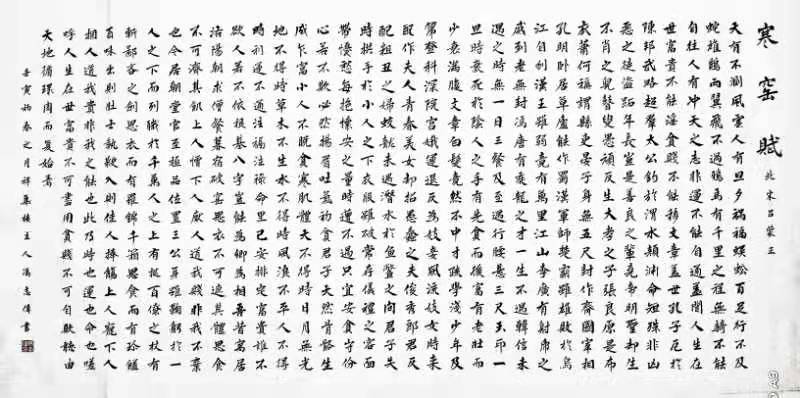 寒窑賦 北宋吕蒙正
天有不測風雲人有旦夕禍福蜈蚣百足行不及
蛇雄鷄兩翼飛不過鴉馬有千里之程無騎不能
自往人有冲天之志非運不能自通蓋聞人生在
世富貴不能淫貧賤不能移文章蓋世孔子厄於
陳邦武略超羣太公釣於渭水顏淵命短殊非凶
惡之徒盜跖年長豈是善良之輩堯帝明聖却生
不肖之兒瞽叟愚頑反生大孝之子張良原是布
衣蕭何稱謂縣吏晏子身無五尺封作齊國宰相
孔明卧居草廬能作蜀漢軍師楚霸雖雄敗於烏
江自刎漢王雖弱竟有萬里江山李廣有射虎之
威到老無封馮唐有乘龍之才一生不遇韓信未
遇之時無一日三餐及至遇行腰懸三尺玉印一
旦時衰死於陰人之手有先貧而後富有老壯而
少衰滿腹文章白髮竟然不中才疏學淺少年及
第登科深院宮娥運退反為妓妾風流妓女時來
配作夫人青春美女却招愚蠢之夫俊秀郎君反
配粗丑之婦蛟龍未遇潛水於魚鱉之間君子失
時拱手於小人之下衣服雖破常存儀禮之容面
帶憂愁每抱懷安之量時遭不遇只宜安貧守份
心若不欺必然揚眉吐氣初貧君子天然骨骼生
成乍富小人不脫貧寒肌體天不得時日月無光
地不得時草木不生水不得時風浪不平人不得
時利運不通注福注祿命里已安排定富貴誰不
欲人若不依根基八字豈能為卿為相吾昔寓居
洛陽朝求僧餐暮宿破窑思衣不可遮其體思食
不可濟其飢上人憎下人厭人道我賤非我不棄
也今居朝堂官至極品位置三公身雖鞠躬於一
人之下而列職於千萬人之上有撻百僚之杖有
斬鄙吝之劍思衣而有羅錦千箱思食而有珍饈
百味出則壯士執鞭入則佳人捧觴上人寵下人
擁人道我貴非我之能也此乃時也運也命也嗟
呼人生在世富貴不可盡用貧賤不可自欺聽由
天地循環周而復始焉
壬寅初春之月祥集樓主人馮志偉書